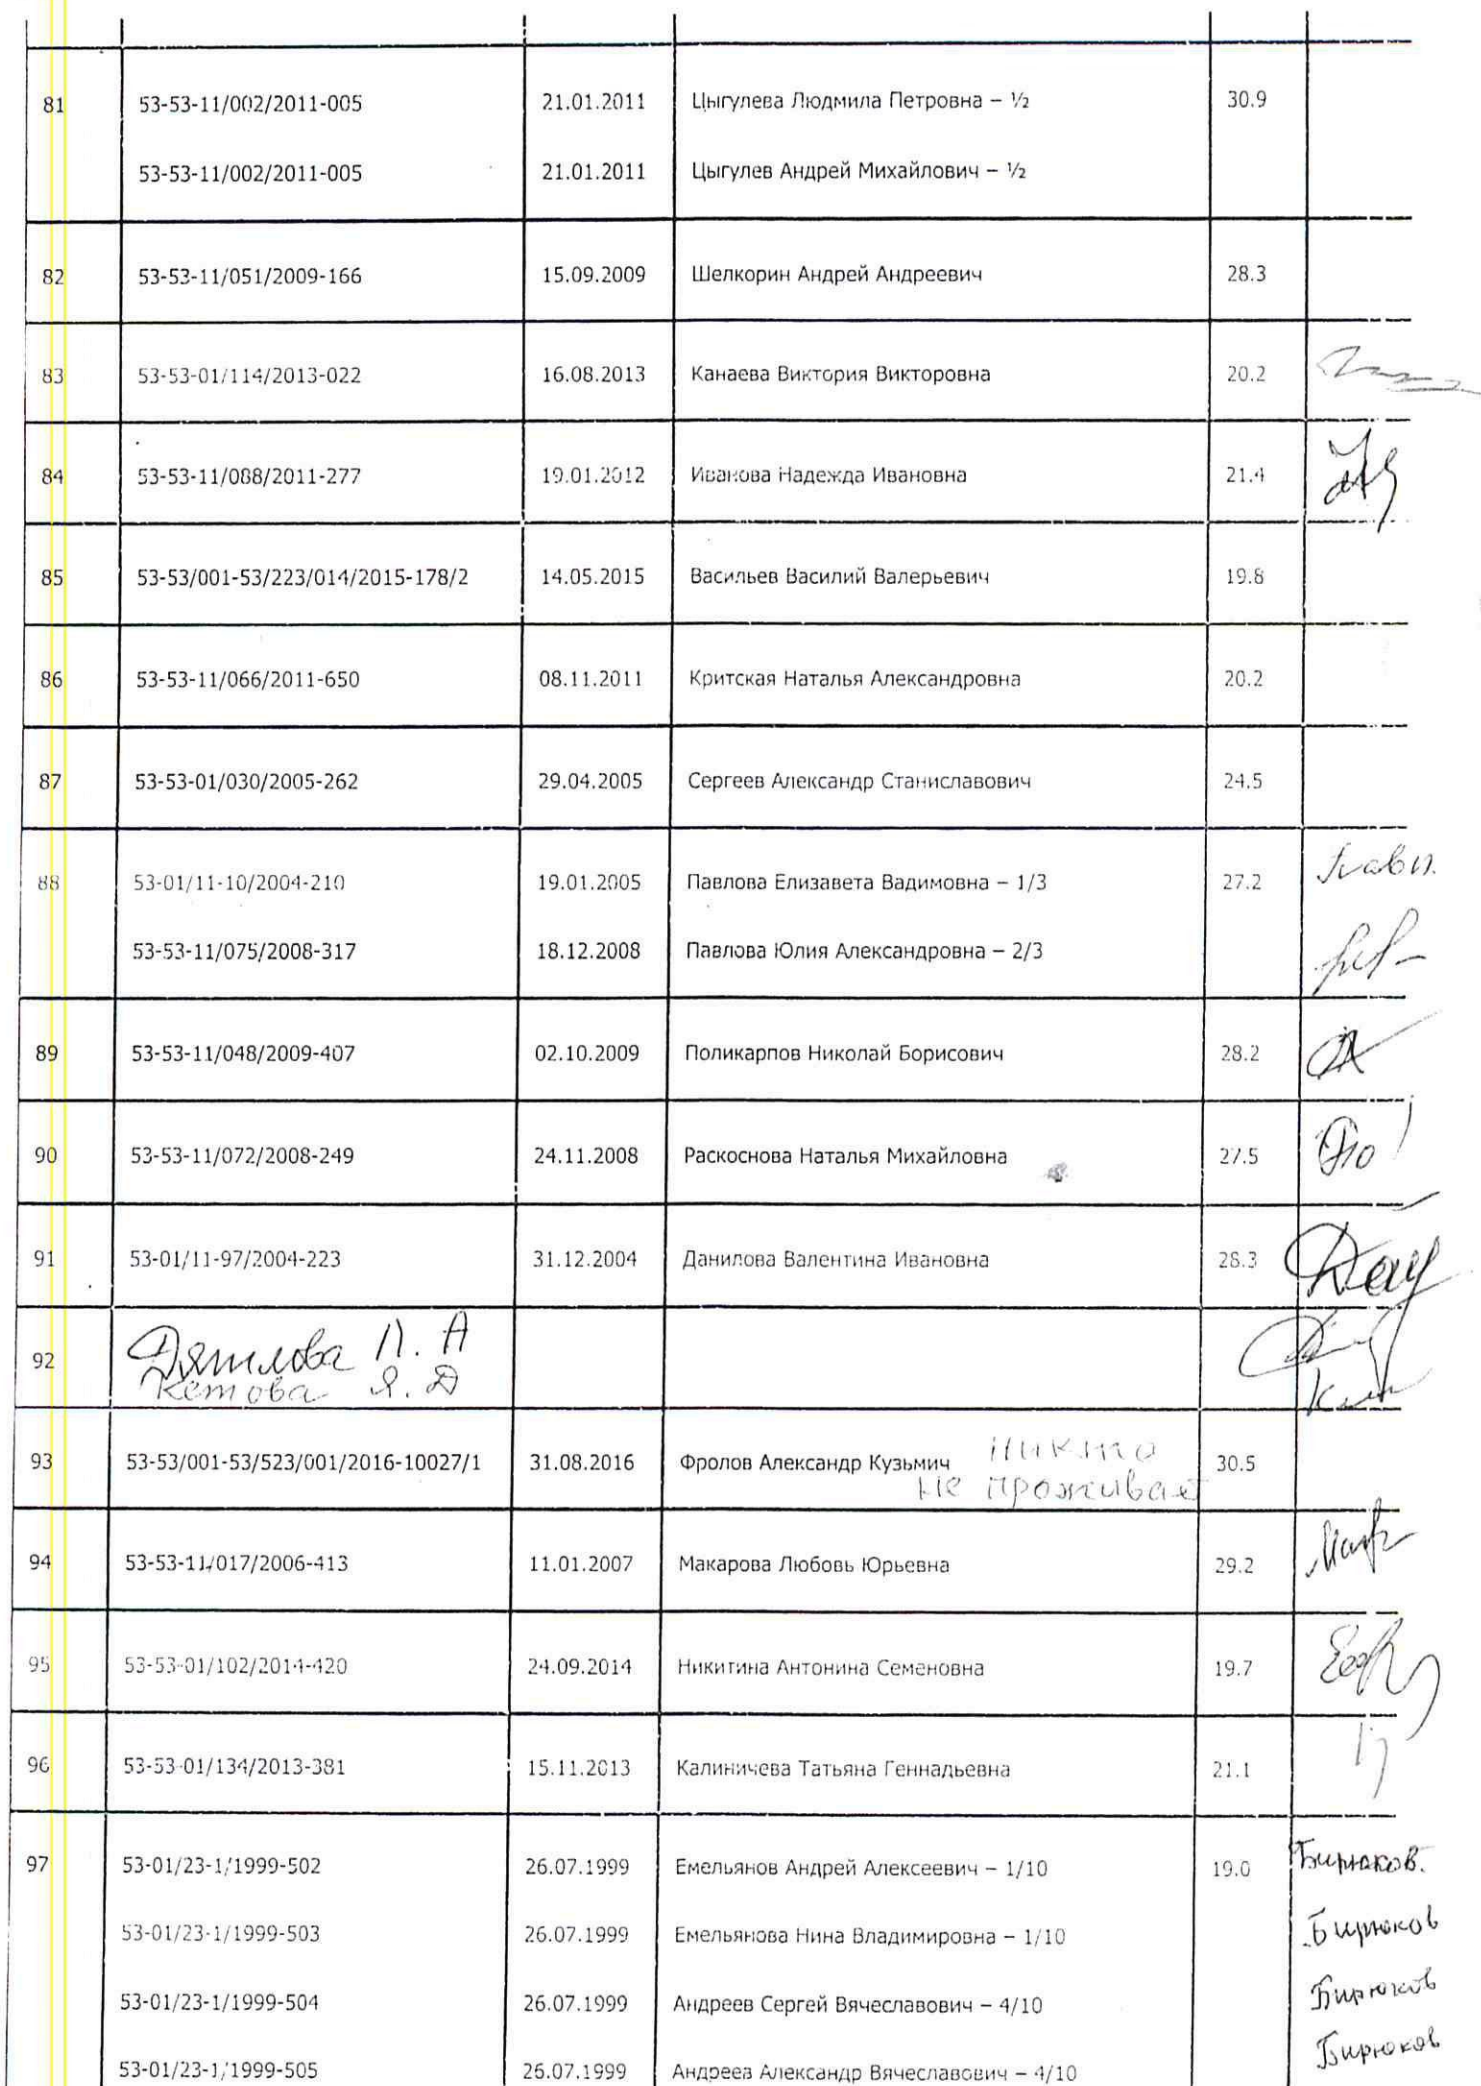 81 53-53-11/002/2011-005 21.01.2011 Цыгулева Людмила Петровна – ½ 30.9
53-53-11/002/2011-005 21.01.2011 Цыгулев Андрей Михайлович – ½
82 53-53-11/051/2009-166 15.09.2009 Шелкорин Андрей Андреевич 28.3
83 53-53-01/114/2013-022 16.08.2013 Канаева Виктория Викторовна 20.2
84 53-53-11/088/2011-277 19.01.2012 Иванова Надежда Ивановна 21.4
85 53-53/001-53/223/014/2015-178/2 14.05.2015 Васильев Василий Валерьевич 19.8
86 53-53-11/066/2011-650 08.11.2011 Критская Наталья Александровна 20.2
87 53-53-01/030/2005-262 29.04.2005 Сергеев Александр Станиславович 24.5
88 53-01/11-10/2004-210 19.01.2005 Павлова Елизавета Вадимовна – 1/3 27.2
53-53-11/075/2008-317 18.12.2008 Павлова Юлия Александровна – 2/3
89 53-53-11/048/2009-407 02.10.2009 Поликарпов Николай Борисович 28.2
90 53-53-11/072/2008-249 24.11.2008 Раскоснова Наталья Михайловна 27.5
91 53-01/11-97/2004-223 31.12.2004 Данилова Валентина Ивановна 28.3
92 Дятлова П. А
Кетова Я. Д
93 53-53/001-53/523/001/2016-10027/1 31.08.2016 Фролов Александр Кузьмич никто 30.5
не проживает
94 53-53-11/017/2006-413 11.01.2007 Макарова Любовь Юрьевна 29.2
95 53-53-01/102/2014-420 24.09.2014 Никитина Антонина Семеновна 19.7
96 53-53-01/134/2013-381 15.11.2013 Калиничева Татьяна Геннадьевна 21.1
97 53-01/23-1/1999-502 26.07.1999 Емельянов Андрей Алексеевич – 1/10 19.0 Бирюков.
53-01/23-1/1999-503 26.07.1999 Емельянова Нина Владимировна – 1/10 Бирюков
53-01/23-1/1999-504 26.07.1999 Андреев Сергей Вячеславович – 4/10 Бирюков
53-01/23-1/1999-505 26.07.1999 Андреев Александр Вячеславович – 4/10 Бирюков